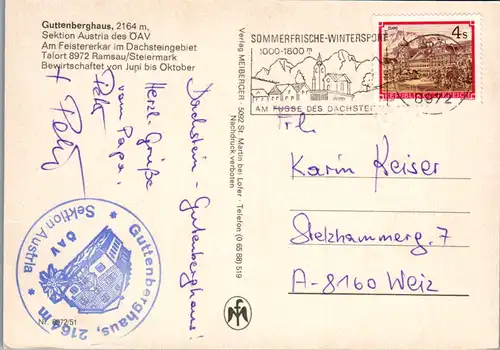 Guttenberghaus, 2164 m,
Sektion Austria des ÖAV
Am Feistererkar im Dachsteingebiet
Talort 8972 Ramsau/Steiermark
Bewirtschaftet von Juni bis Oktober
Dachstein - Guttenberghaus!
Herzl. Grüße
vom Papa.
Verlag MEIBERGER - 5092 St. Martin bei Lofer - Telefon (0 65 88) 519
Nachdruck verboten
SOMMERFRISCHE-WINTERSPORT
1000-1800 m
AM FUSSE DES DACHSTEIN
4 S
REPUBLIK ÖSTERREICH
8972
Frl.
Karin Keiser
Stelzhammerg. 7
A-8160 Weiz
Guttenberghaus, 2164 m
ÖAV
Sektion Austria
Nr. 8972/51